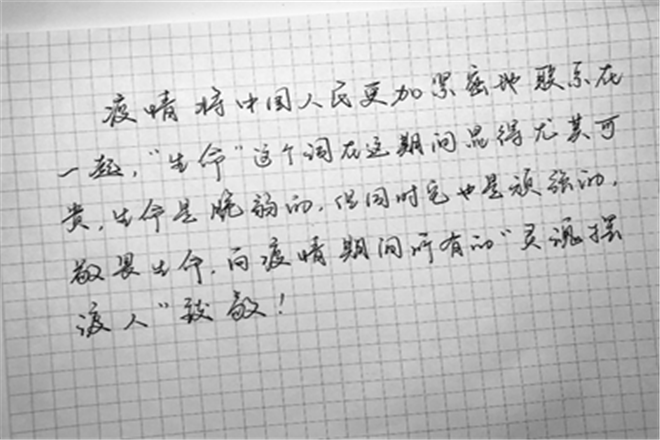 疫情将中国人民更加紧密地联系在
一起，“生命”这个词在这期间显得尤其可
贵，生命是脆弱的，但同时它也是顽强的，
敬畏生命，向疫情期间所有的“灵魂摆
渡人”致敬！